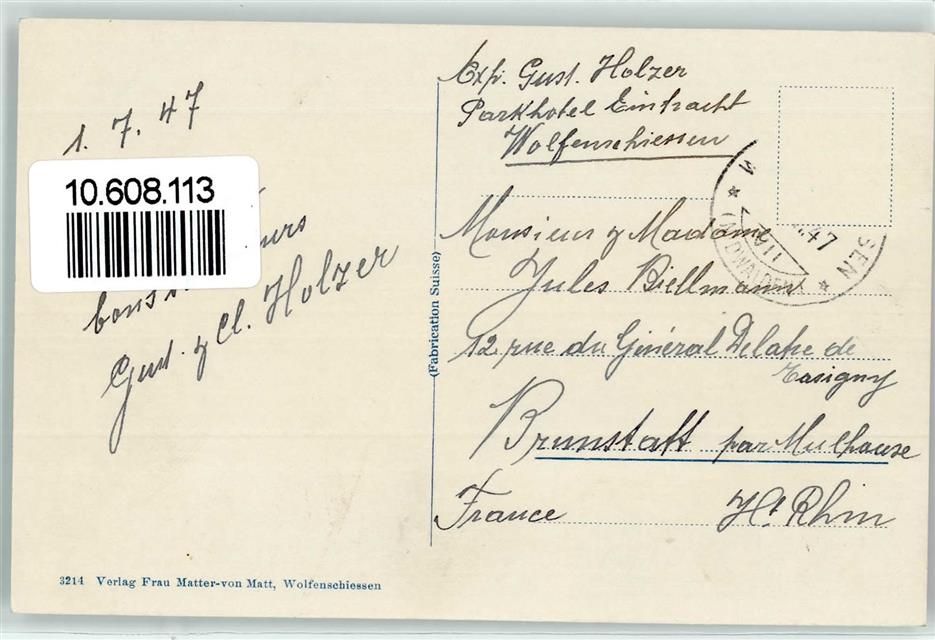 1. 7. 47
10.608.113
Gust. y Cl. Holzer
3214 Verlag Frau Matter-von Matt, Wolfenschiessen
(Fabrication Suisse)
Exp. Gust. Holzer
Parkhotel Eintracht
Wolfenschiessen
SEN
47
Monsieur y Madame
Jules Biellmann
12 rue du Général Delatre de
Tasigny
Brunstatt par Mulhouse
France Ht Rhin